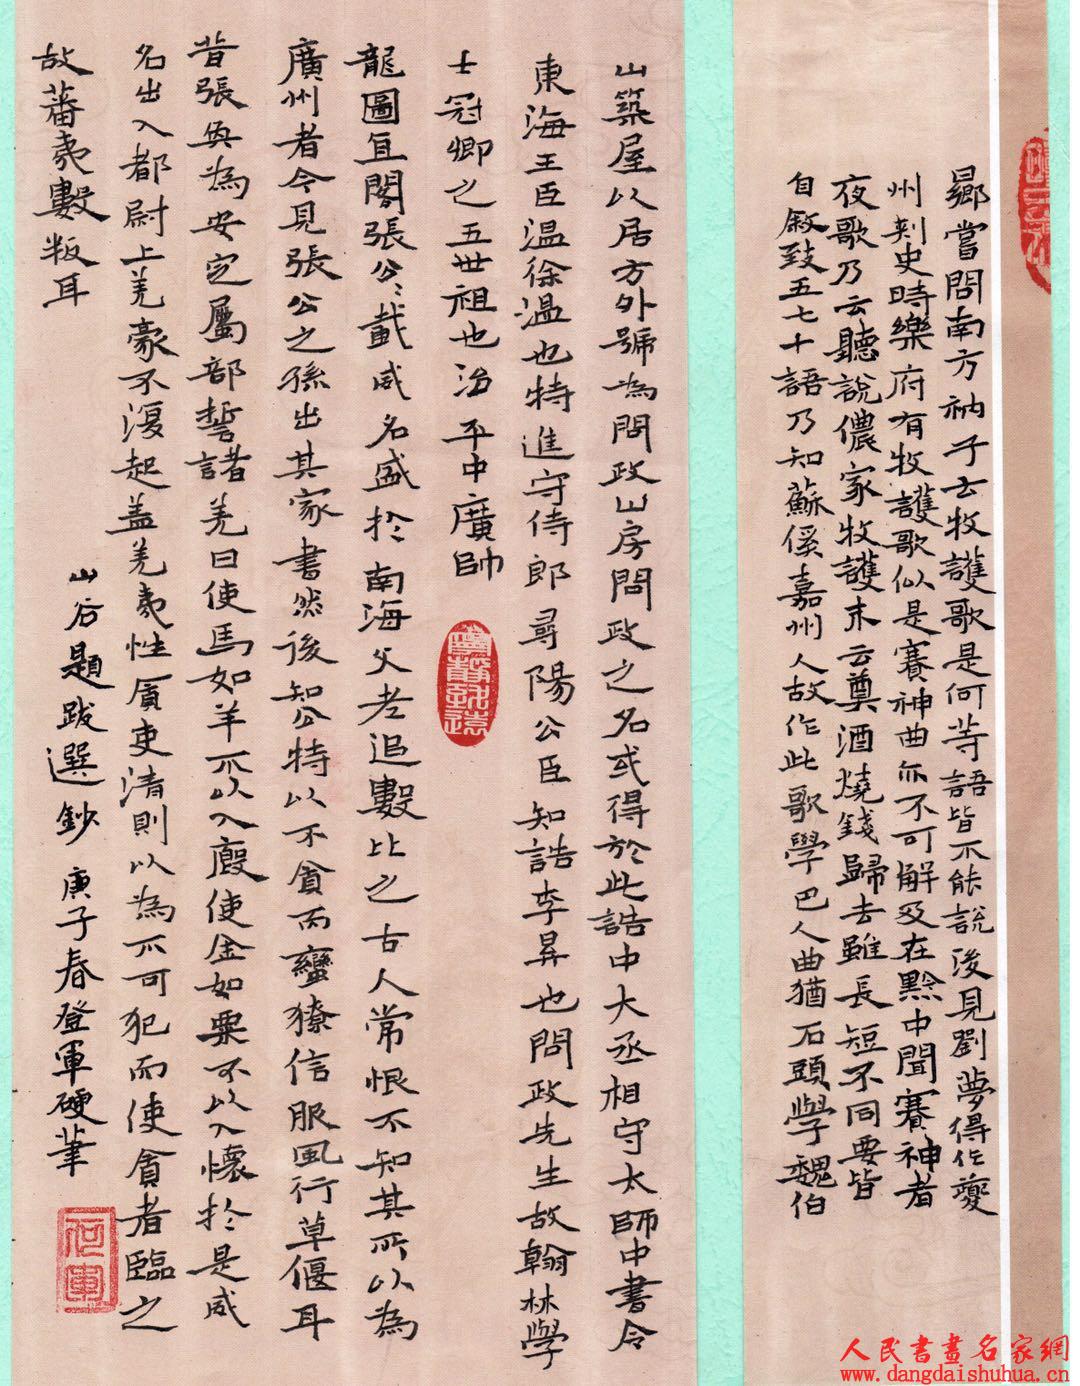 鄉嘗問南方衲子云牧護歌是何等語皆不能說後見劉夢得作夔
州刺史時樂府有牧護歌似是賽神曲亦不可解及在黔中聞賽神者
夜歌乃云聽說儂家牧護末云奠酒燒錢歸去雖長短不同要皆
自敘致五七十語乃知蘇傒嘉州人故作此歌學巴人曲猶石頭學魏伯
山築屋以居方外號為問政山房問政之名或得於此誥中大丞相守太師中書令
東海王臣溫徐溫也特進守侍郎尋陽公臣知誥李昇也問政先生故翰林學
士冠卿之五世祖也治平中廣帥
龍圖直閣張公公載威名盛於南海父老追數比之古人常恨不知其所以為
廣州者今見張公之孫出其家書然後知公特以不貪而蠻獠信服風行草偃耳
昔張奐為安定屬部誓諸羌曰使馬如羊不以入廄使金如粟不以入懷於是威
名出入都尉上羌豪不復起蓋羌夷性貪吏清則以為不可犯而使貪者臨之
故蕃夷數叛耳
山谷題跋選鈔 庚子春登軍硬筆
人民書畫名家網
www.dangdaishuhua.cn